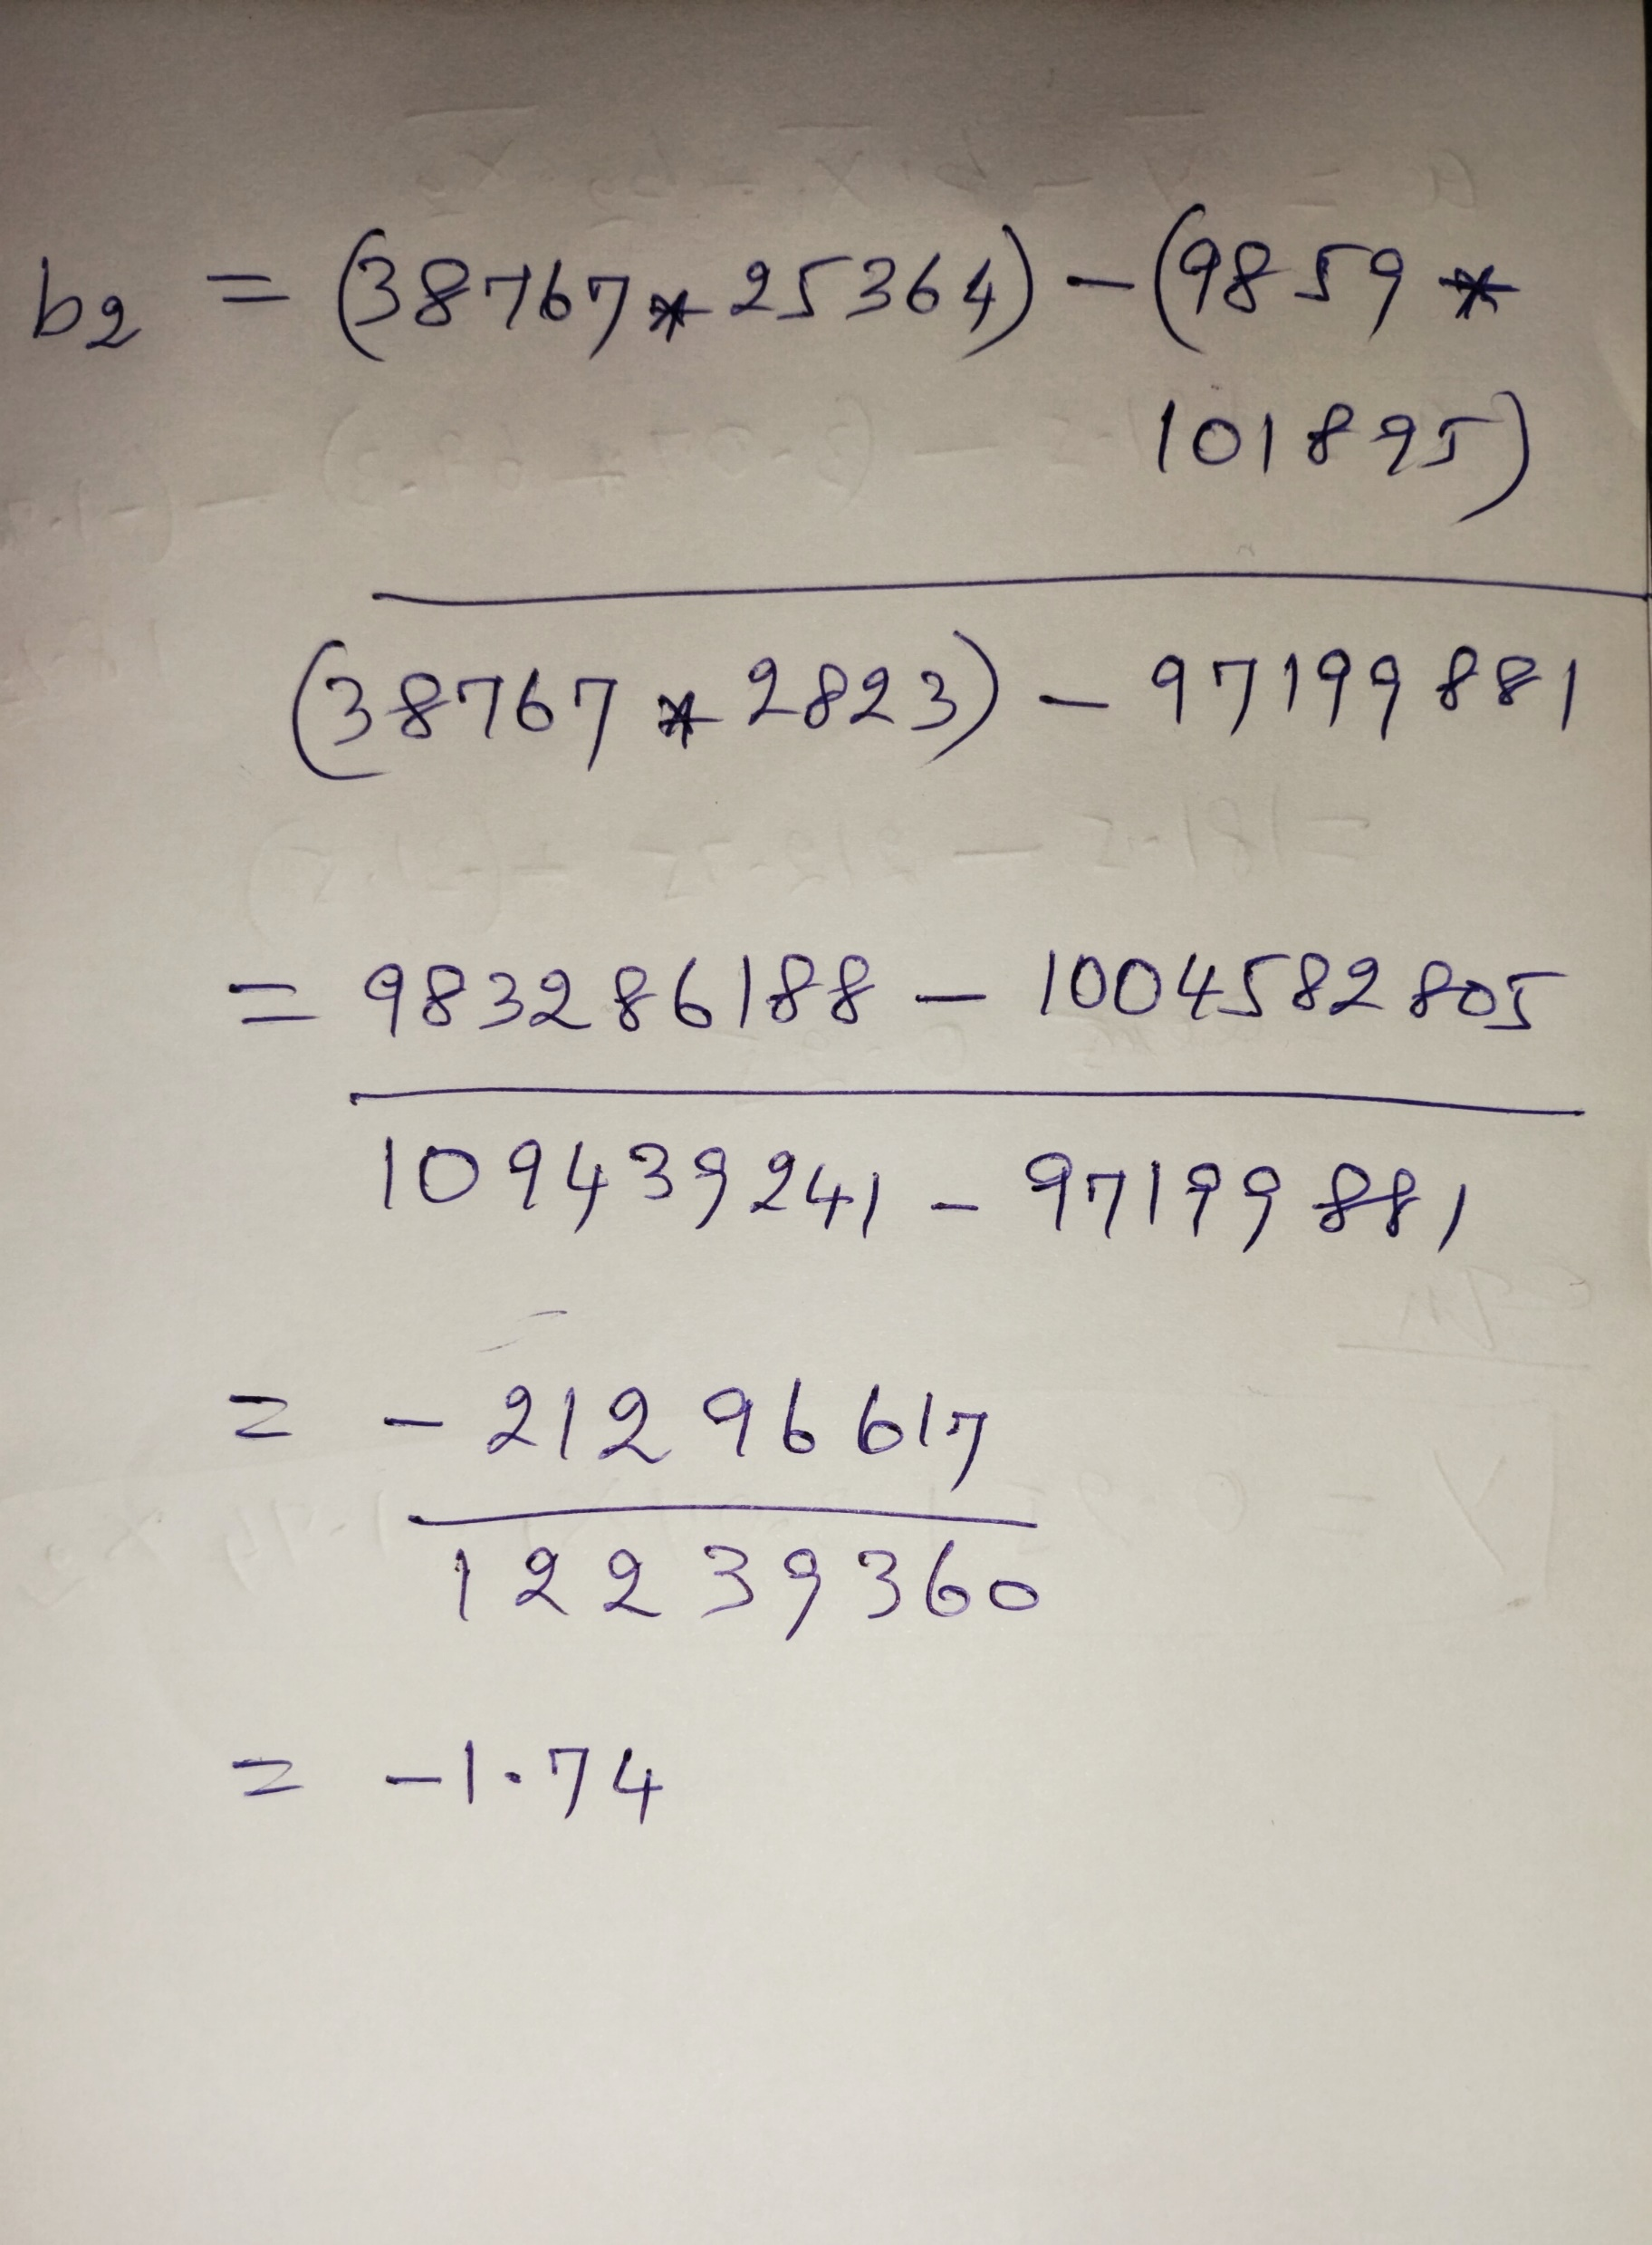 b2 = (38767 * 25364) - (9859 *
101895)
(38767 * 2823) - 97199881
= 983286188 - 1004582805
109439241 - 97199881
= - 21296617
12239360
= -1.74